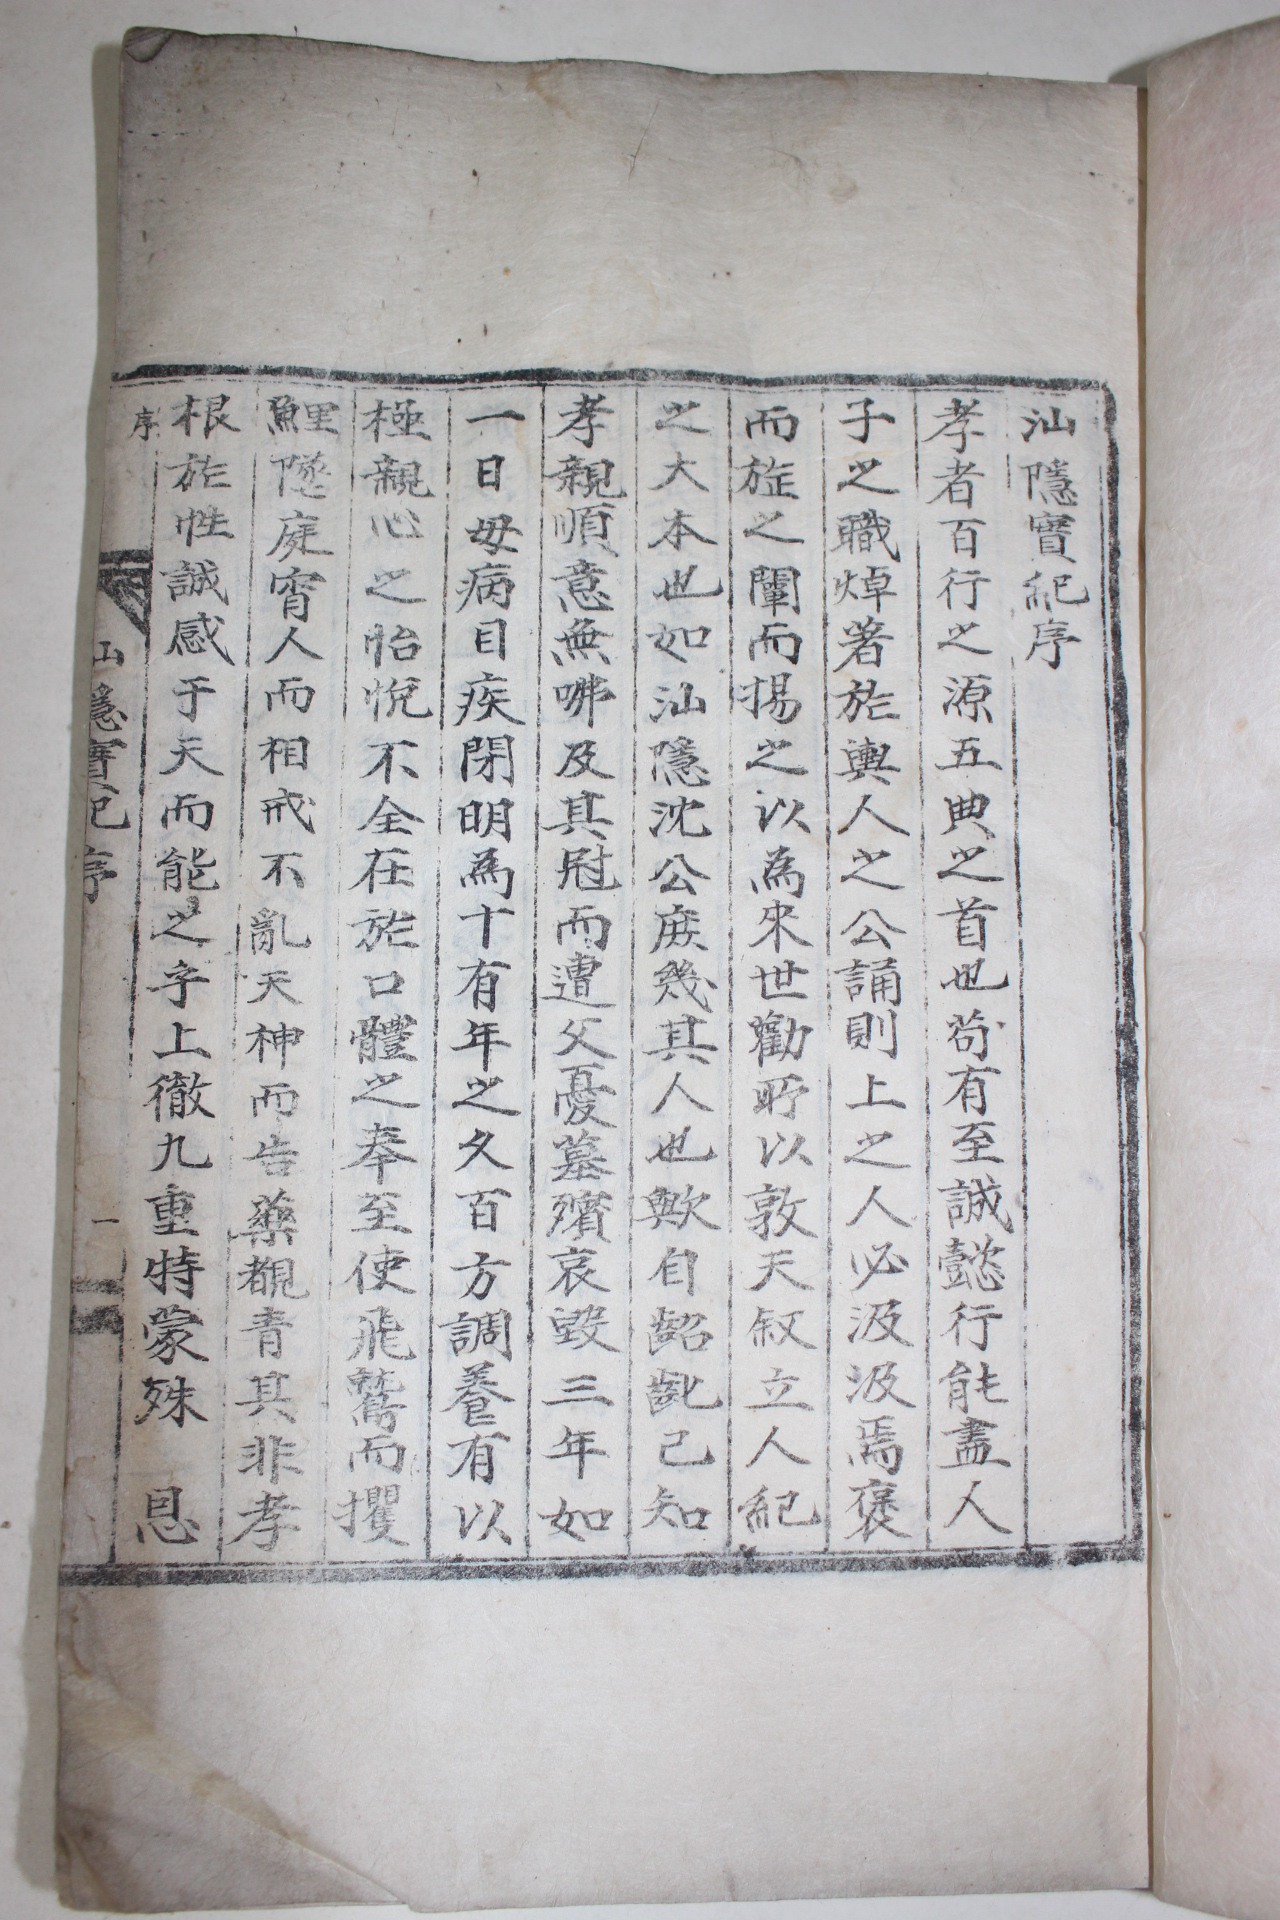 汕隱實紀序
孝者百行之源五典之首也苟有至誠懿行能盡人
子之職焯著於輿人之公誦則上之人必汲汲焉褒
而旌之闡而揚之以為來世勸所以敦天叙立人紀
之大本也如汕隱沈公庶幾其人也歟自齠齔已知
孝親順意無咈及其冠而遭父憂墓殯哀毀三年如
一日母病目疾閉明為十有年之久百方調養有以
極親心之怡悅不全在於口體之奉至使飛鷲而攫
鯉墜庭宵人而相戒不亂天神而告藥覩青其非孝
根於性誠感于天而能之乎上徹九重特蒙殊 恩
序
汕隱實紀序
一